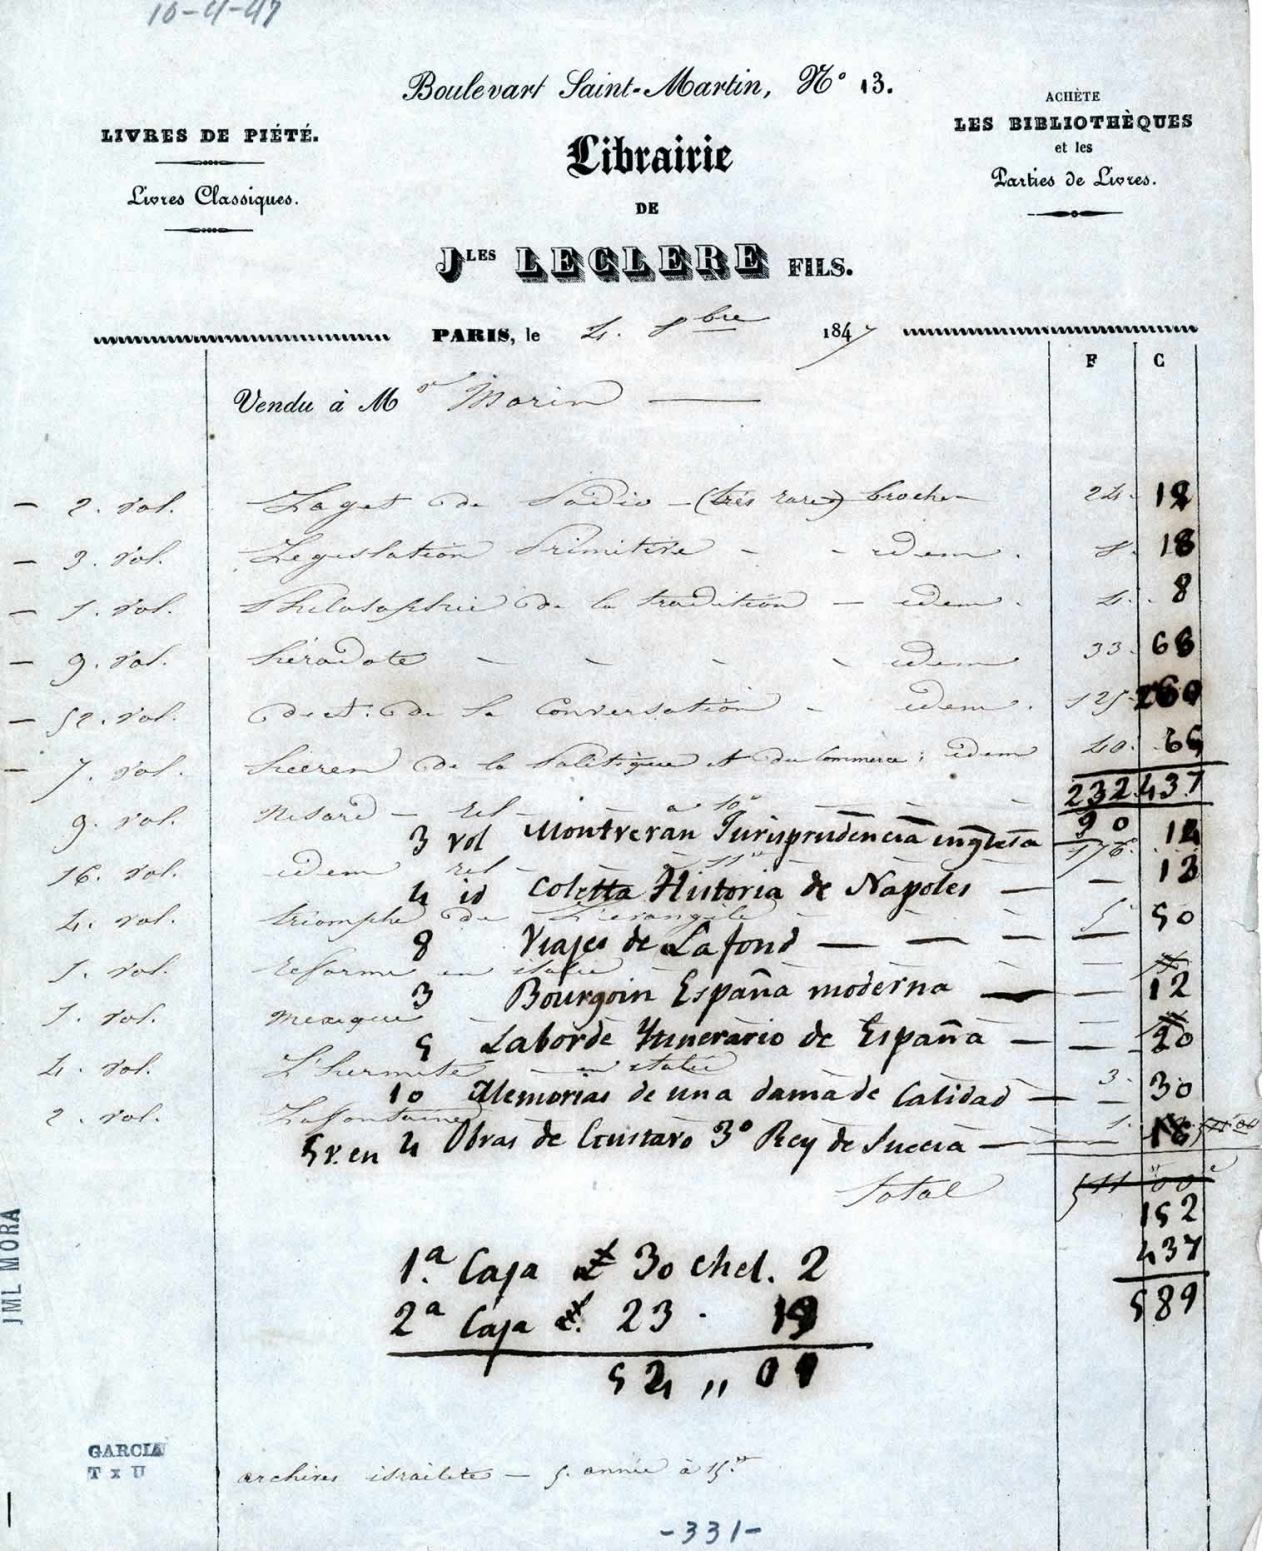 10-4-47
Boulevart Saint-Martin, N° 13.
LIVRES DE PIÉTÉ.
Livres Classiques.
Librairie
DE
JLES LECLERE FILS.
ACHÈTE
LES BIBLIOTHÈQUES
et les
Parties de Livres.
PARIS, le 4. 8bre 1847
F C
Vendu à Mr
— 2. vol. de (très rare) broché 24. 18
— 3. vol. Législation Primitive - - idem. 8. 18
— 1. vol. Philosophie de la tradition — idem. 4. 8
— 9. vol. hérodote - - - - idem 33. 68
— 52. vol. dict. de la Conversation - idem. 125 260
— 7. vol. de la Politique et du Commerce : idem 40. 65
232 437
9. vol. Nisard — rel — a 10 90
3 vol Montveran Jurisprudencia inglesa 12
16. vol. idem rel 11 176
4 id Coletta Historia de Napoles — — 12
4. vol. triomphe de l'évangile 5
8 Viajes de Lafond — — — — 50
1. vol. reforme en italie
3 Bourgoin España moderna — — 12
1. vol. mexique
5 Laborde Itinerario de España — — 20
4. vol. L'hermite en italie 3.
10 Memorias de una dama de Calidad — — 30
2. vol. Lafontaine 1.
5 v. en 4 Obras de Gustavo 3° Rey de Suecia — 16
total 511 00
152
437
589
1.a Caja £ 30 chel. 2
2a Caja £. 23 . 19
52 " 01
JML MORA
GARCIA
T x U
archives israelite — 5. année à 15.
-331-